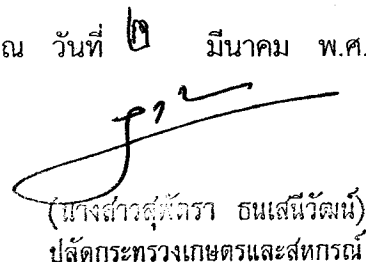 ณ วันที่ ๒ มีนาคม พ.ศ.
(นางสาวสุพัตรา ธนเสนีวัฒน์)
ปลัดกระทรวงเกษตรและสหกรณ์